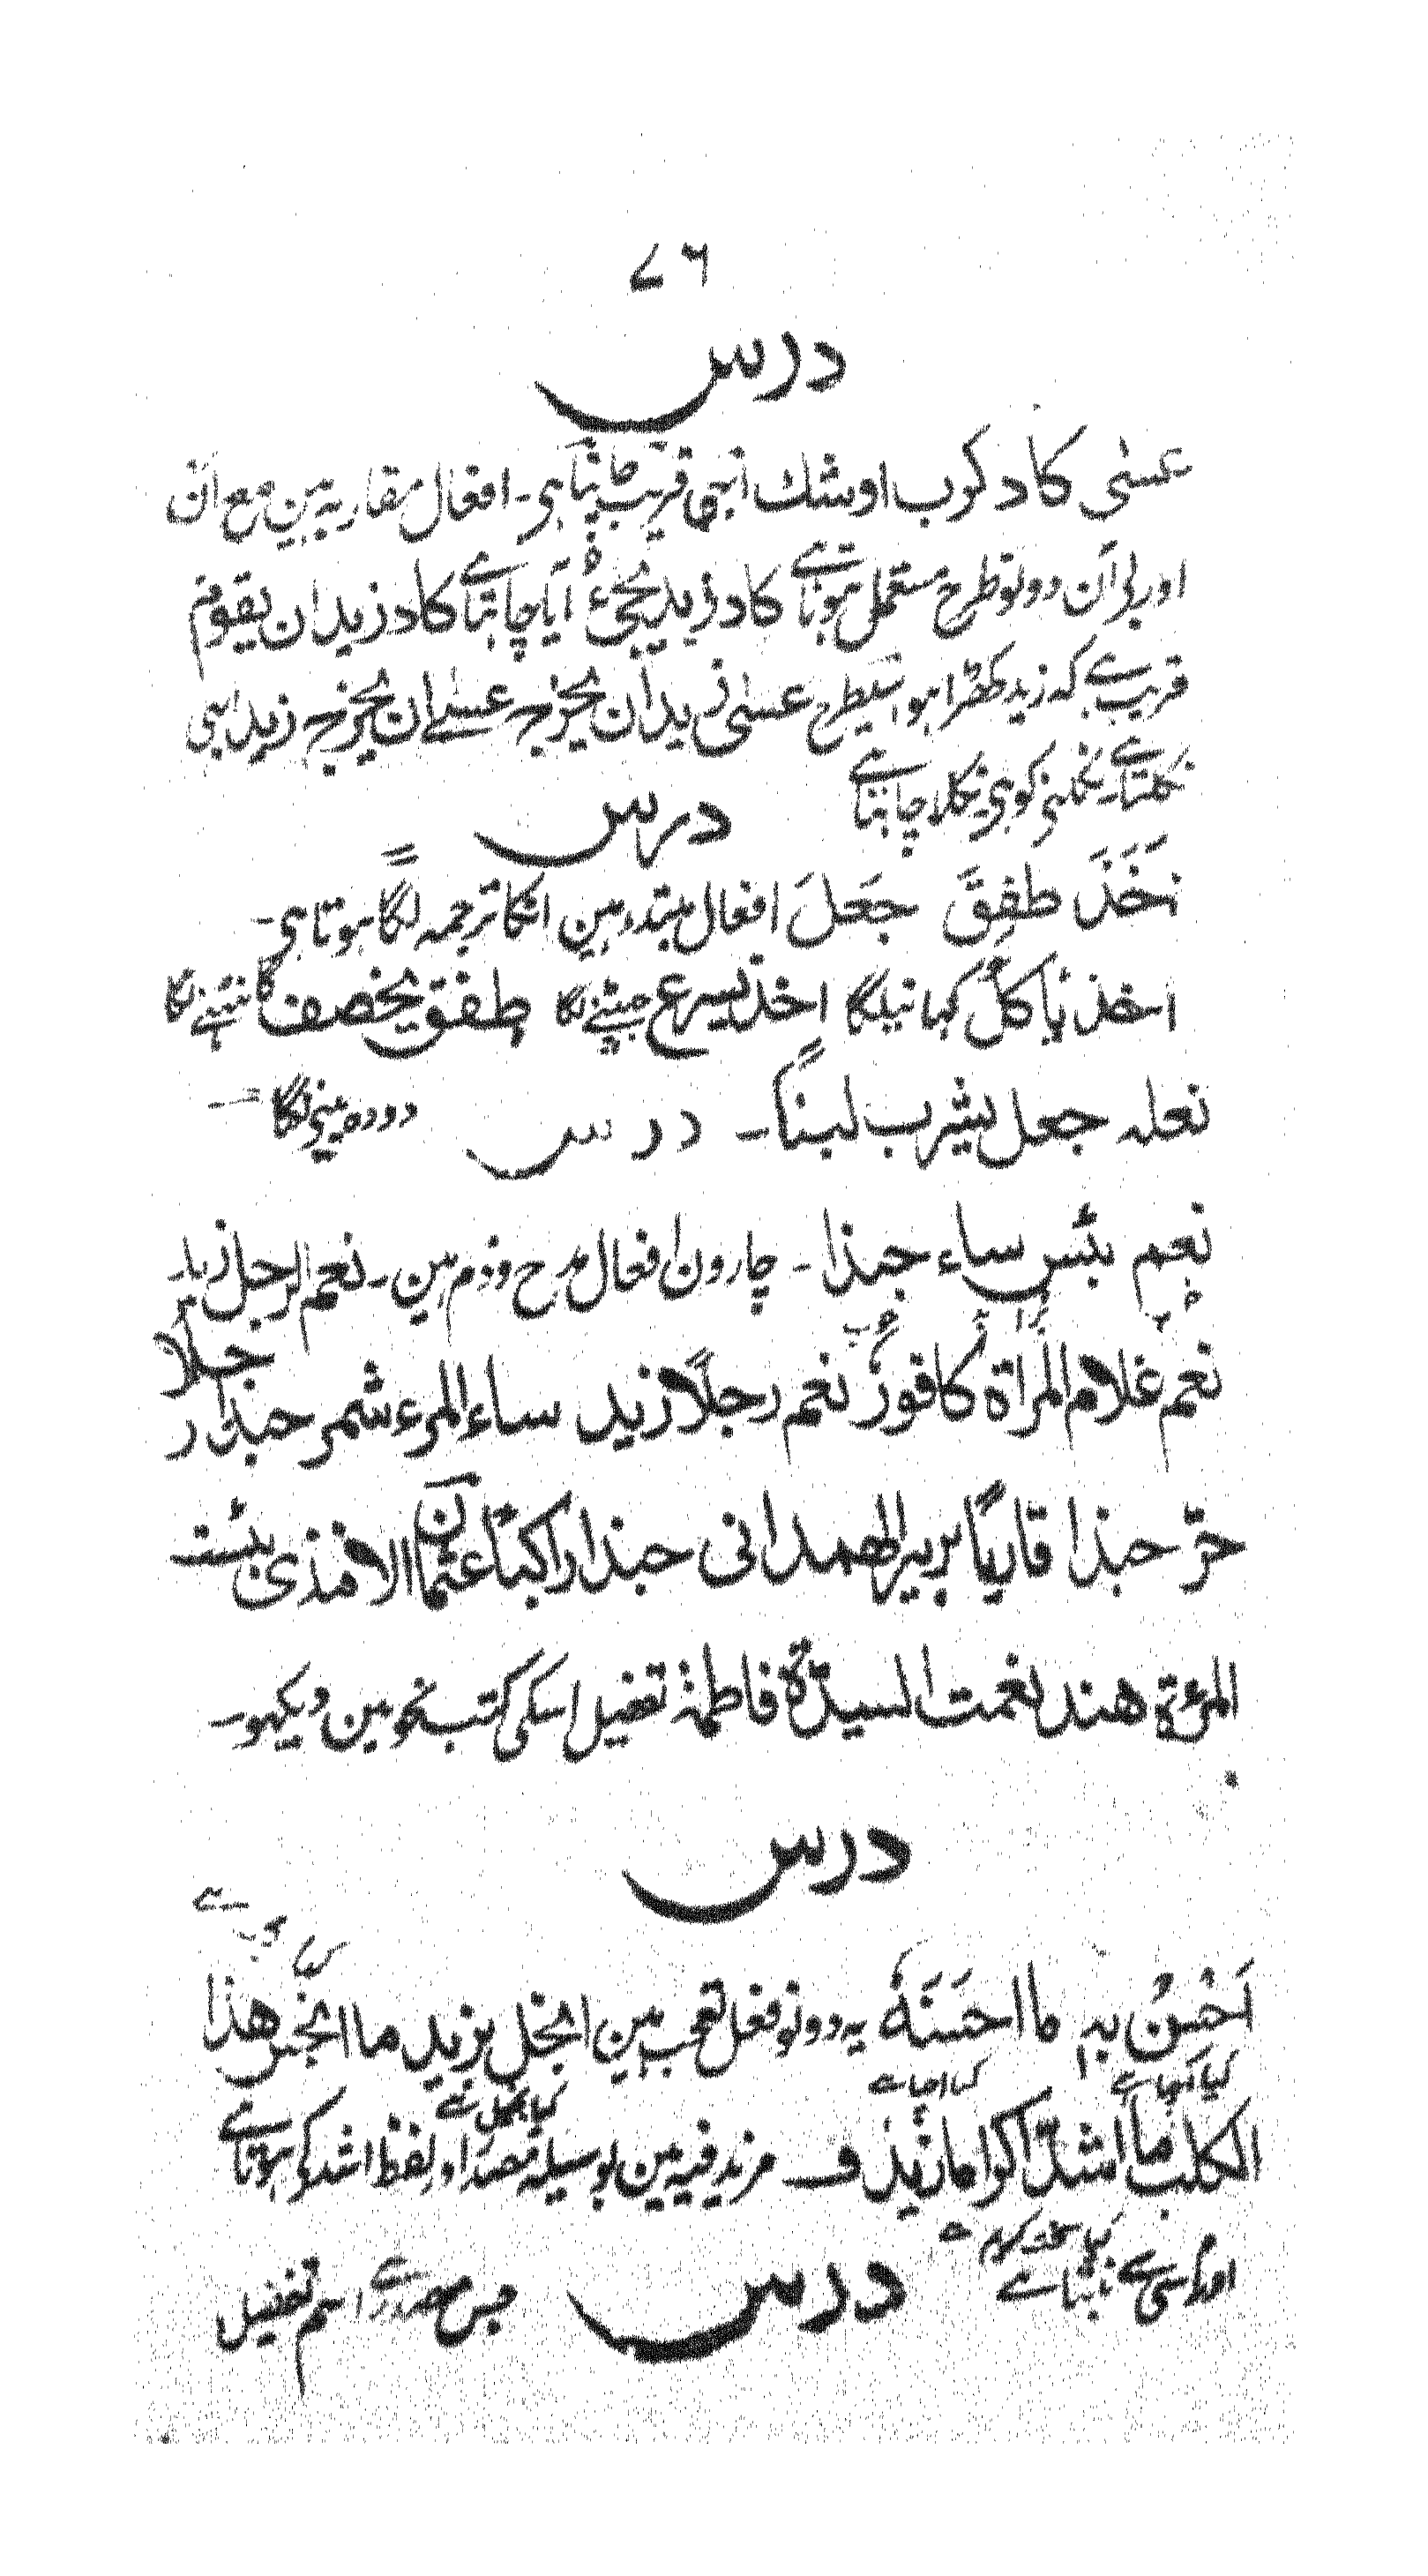 ۷۶
درس
عسٰی کاد کرب اوشك انہی قریب چاہتا ہی۔ افعال مقاربہ ہین مع ان
اور بی اَن دونو طرح مستعمل ہوتا ہے کاد زید یجیٔ آیا چاہتا ہے کاد زید ان یقوم
قریب ہے کہ زید کھڑا ہو اسیطرح عسٰی زید ان یخرج عسٰے ان یخرج زید ابہی
نکلتا ہے نکلنی کو ہی نکلا چاہتا ہے
درس
اَخَذَ طفِقَ جَعَلَ افعال مبتدء ہین انکا ترجمہ لگا ہوتا ہی۔
اخذ یاکل کہانیلگا اخذ یسرع جھپٹنے لگا طفق یخصف گانٹہنے لگا
نعلہ جعل یشرب لبنًا۔ درس دودہ پینی لگا
نعم بئس ساء حبذا۔ چارون افعال مدح وذم ہین۔ نعم الرجل زید
نعم غلام المراة کافور نعم رجلًا زید ساء المرء شمر حبذا رجلًا
حرّ حبذا قاریًا بریر الهمدانی حبذا راکبًا عثمان الافندی بئست
المرءة هند نعمت السیدة فاطمة تفصیل اسکی کتب نحو مین دیکہو۔
درس
اَحْسِنْ بہ ما احسَنَہٗ یہ دونو فعل تعجب ہین ابخل بزید ما انجس هذا
الکلب ما اشدّ اکراما زید ف مزید فیہ مین بوسیلہ مصدر اور لفظ اشد کی ہوتا ہے
اور کسی سے بنتا ہے
درس
جس مصدر سے اسم تفضیل